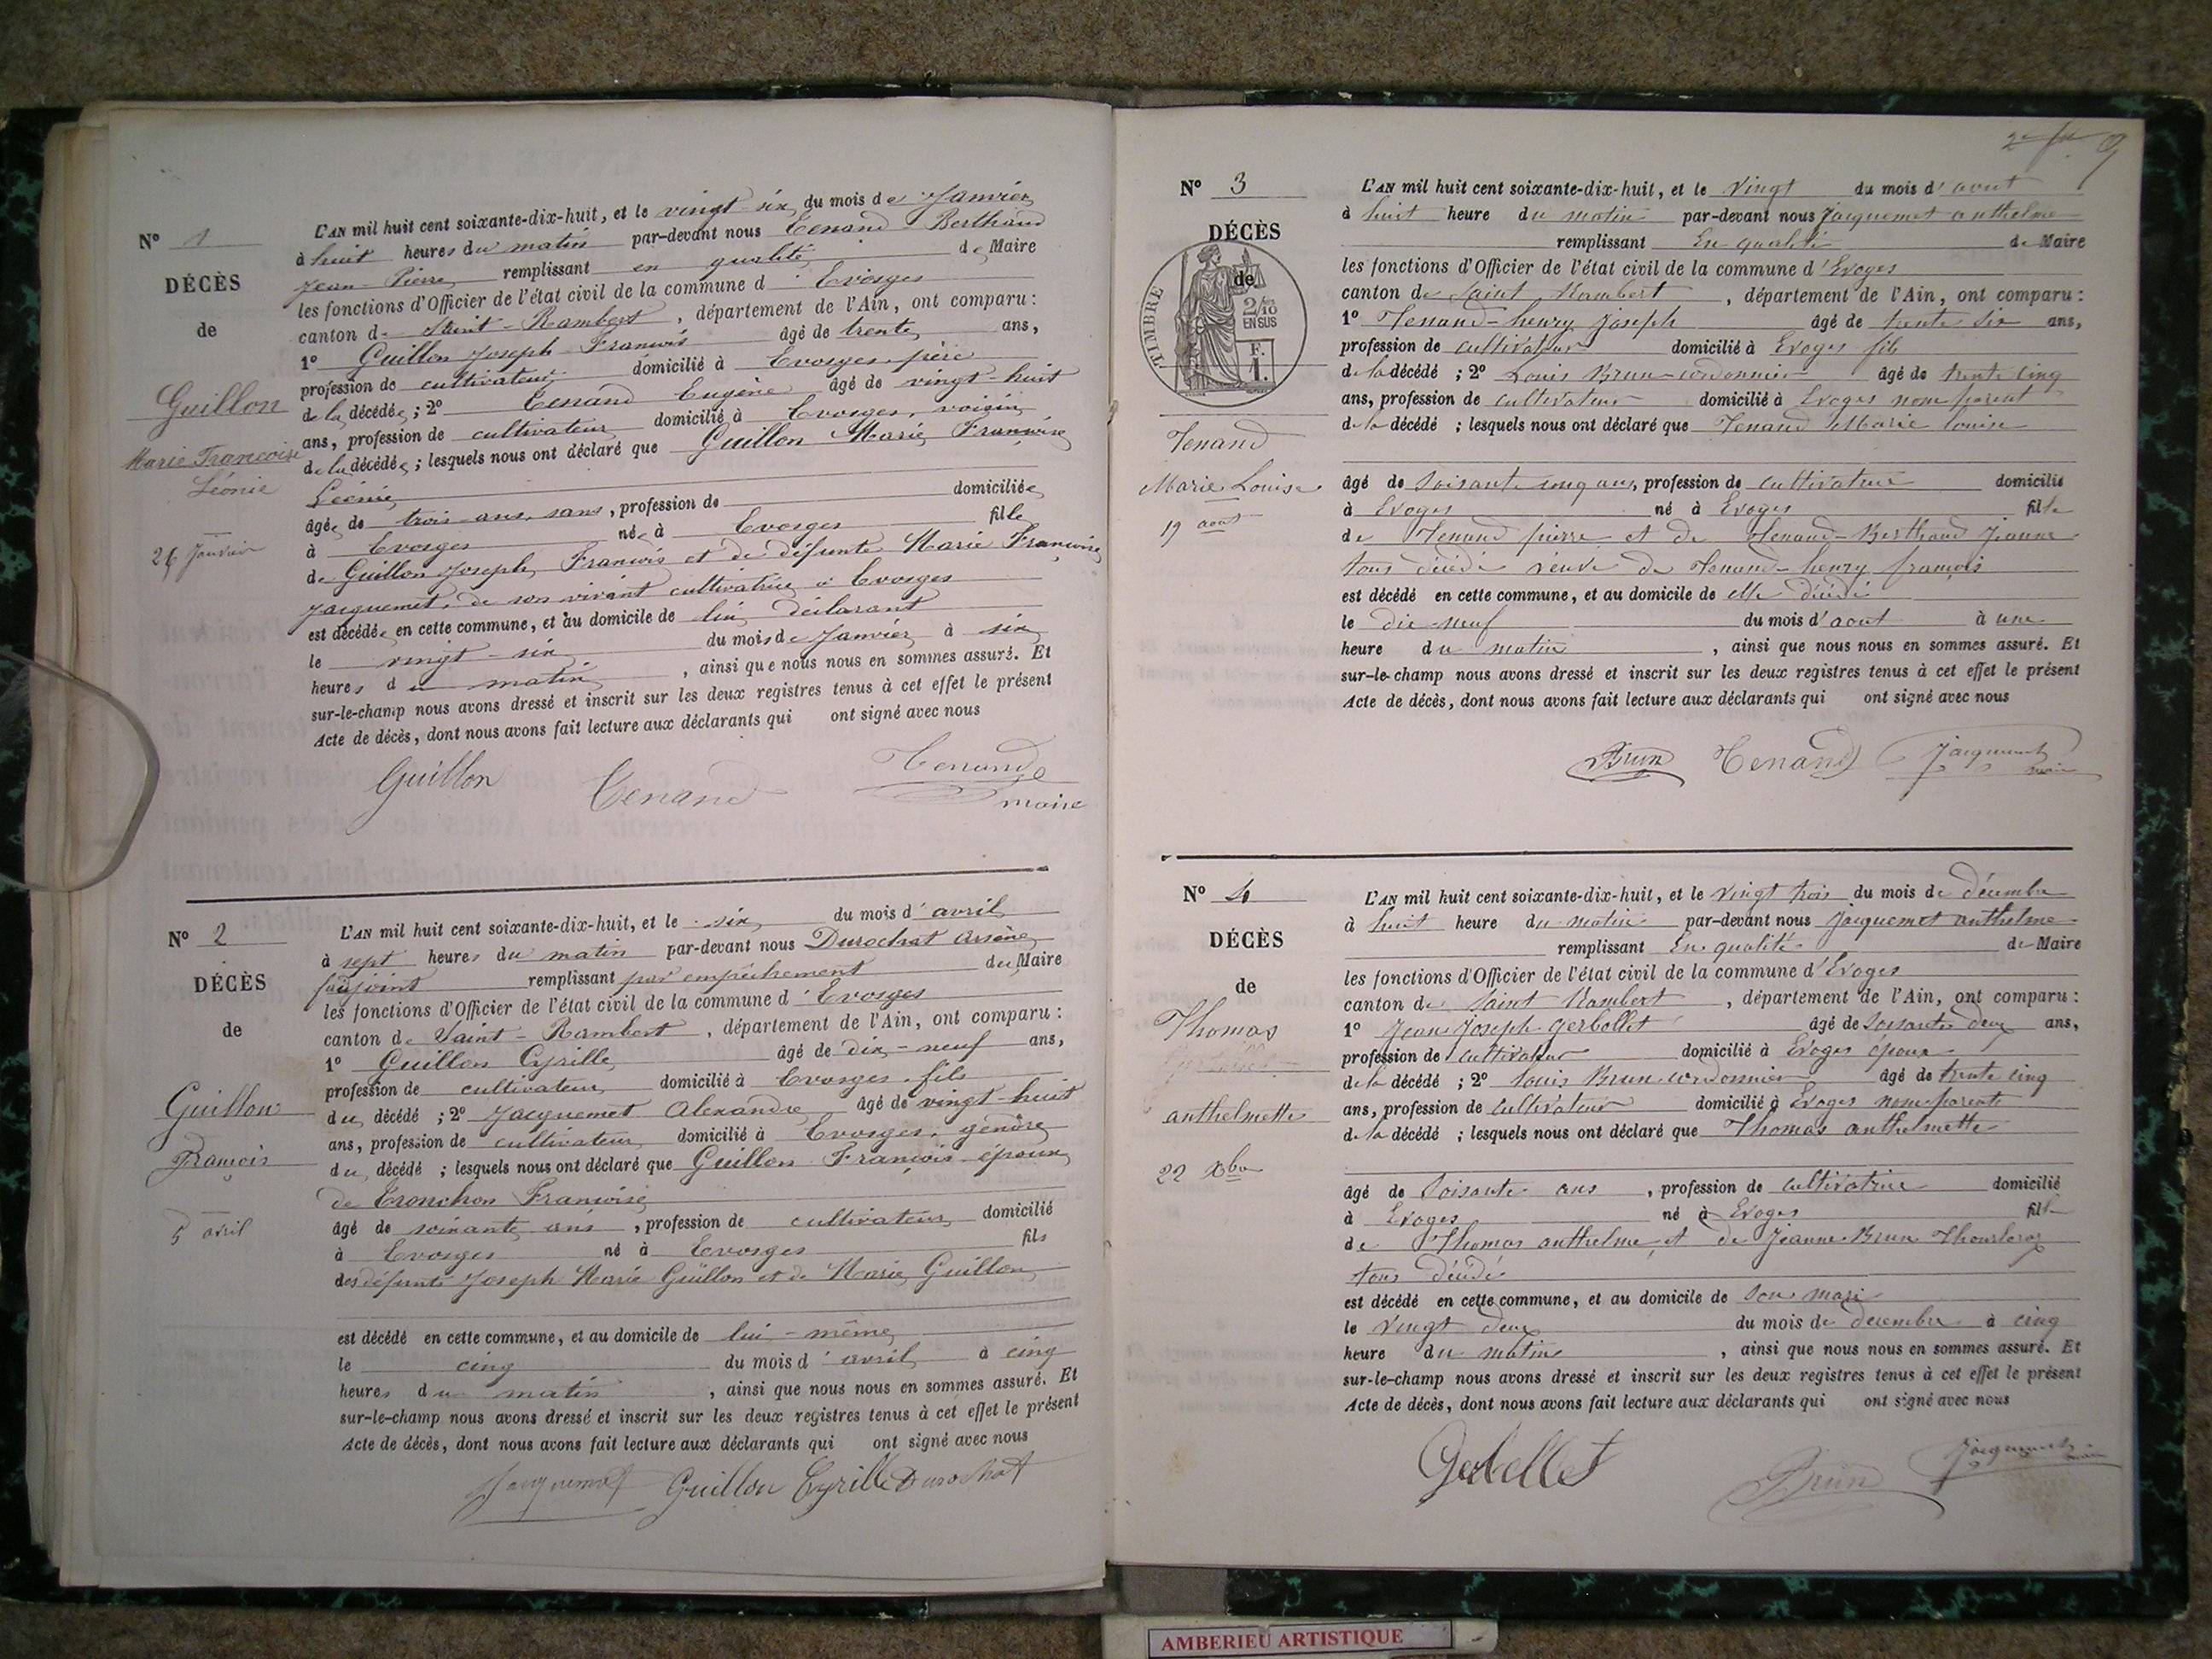 N° 1
DÉCÈS
de
Guillon
Marie Françoise
Léonie
26 Janvier
L'AN mil huit cent soixante-dix-huit, et le vingt-six du mois de Janvier
à huit heures du matin par-devant nous Tenand Berthand
Jean-Pierre remplissant en qualité de Maire
les fonctions d'Officier de l'état civil de la commune d'Evosges
canton de Saint-Rambert, département de l'Ain, ont comparu :
1° Guillon Joseph François âgé de trente ans,
profession de cultivateur domicilié à Evosges, père
de la décédée ; 2° Tenand Eugène âgé de vingt-huit
ans, profession de cultivateur domicilié à Evosges, voisin
de la décédée ; lesquels nous ont déclaré que Guillon Marie Françoise
Léonie
âgée de trois ans, sans, profession de domiciliée
à Evosges née à Evosges fille
de Guillon Joseph François et de défunte Marie Françoise
Jacquemet, de son vivant cultivatrice à Evosges
est décédée en cette commune, et au domicile de lui déclarant
le vingt-six du mois de Janvier à six
heures du matin, ainsi que nous nous en sommes assuré. Et
sur-le-champ nous avons dressé et inscrit sur les deux registres tenus à cet effet le présent
Acte de décès, dont nous avons fait lecture aux déclarants qui ont signé avec nous
Guillon Tenand Tenand
maire
N° 2
DÉCÈS
de
Guillon
François
5 avril
L'AN mil huit cent soixante-dix-huit, et le six du mois d'avril
à sept heures du matin par-devant nous Durochat Arsène
adjoint remplissant par empêchement du Maire
les fonctions d'Officier de l'état civil de la commune d'Evosges
canton de Saint-Rambert, département de l'Ain, ont comparu :
1° Guillon Cyrille âgé de dix-neuf ans,
profession de cultivateur domicilié à Evosges, fils
du décédé ; 2° Jacquemet Alexandre âgé de vingt-huit
ans, profession de cultivateur domicilié à Evosges, gendre
du décédé ; lesquels nous ont déclaré que Guillon François époux
de Tronchon Françoise
âgé de soixante ans, profession de cultivateur domicilié
à Evosges né à Evosges fils
des défunts Joseph Marie Guillon et de Marie Guillon
est décédé en cette commune, et au domicile de lui-même
le cinq du mois d'avril à cinq
heures du matin, ainsi que nous nous en sommes assuré. Et
sur-le-champ nous avons dressé et inscrit sur les deux registres tenus à cet effet le présent
Acte de décès, dont nous avons fait lecture aux déclarants qui ont signé avec nous
Jacquemet Guillon Cyrille Durochat
9
N° 3
DÉCÈS
de
TIMBRE
2/10
EN SUS
F.
1.
Tenand
Marie Louise
19 aout
L'AN mil huit cent soixante-dix-huit, et le vingt du mois d'aout
à huit heure du matin par-devant nous Jacquemet anthelme
remplissant En qualité de Maire
les fonctions d'Officier de l'état civil de la commune d'Evoges
canton de Saint Rambert, département de l'Ain, ont comparu :
1° Tenand-henry joseph âgé de trente six ans,
profession de cultivateur domicilié à Evoges fils
de la décédé ; 2° Louis Brun-cordonnier âgé de trente cinq
ans, profession de cultivateur domicilié à Evoges nom parent
de la décédé ; lesquels nous ont déclaré que Tenand Marie louise
âgé de soisante cinq ans, profession de cultivatrice domicilié
à Evoges né à Evoges fille
de Tenand pierre et de Tenand-Berthand Jeanne
tous décédé veuve de Tenand-henry françois
est décédé en cette commune, et au domicile de elle décédé
le dix neuf du mois d'aout à une
heure du matin, ainsi que nous nous en sommes assuré. Et
sur-le-champ nous avons dressé et inscrit sur les deux registres tenus à cet effet le présent
Acte de décès, dont nous avons fait lecture aux déclarants qui ont signé avec nous
Brun Tenand Jacquemet
maire
N° 4
DÉCÈS
de
Thomas
anthelmette
22 Xbre
L'AN mil huit cent soixante-dix-huit, et le vingt trois du mois de décembre
à huit heure du matin par-devant nous Jacquemet anthelme
remplissant En qualité de Maire
les fonctions d'Officier de l'état civil de la commune d'Evoges
canton de Saint Rambert, département de l'Ain, ont comparu :
1° Jean Joseph Gerbollet âgé de soisante deux ans,
profession de cultivateur domicilié à Evoges époux
de la décédé ; 2° Louis Brun-cordonnier âgé de trente cinq
ans, profession de cultivateur domicilié à Evoges nom parent
de la décédé ; lesquels nous ont déclaré que Thomas anthelmette
âgé de Soisante ans, profession de cultivatrice domicilié
à Evoges né à Evoges fille
de Thomas anthelme et de Jeanne Brun
tous décédé
est décédé en cette commune, et au domicile de son mari
le vingt deux du mois de decembre à cinq
heure du matin, ainsi que nous nous en sommes assuré. Et
sur-le-champ nous avons dressé et inscrit sur les deux registres tenus à cet effet le présent
Acte de décès, dont nous avons fait lecture aux déclarants qui ont signé avec nous
Gerbellet Brun Jacquemet
AMBERIEU ARTISTIQUE